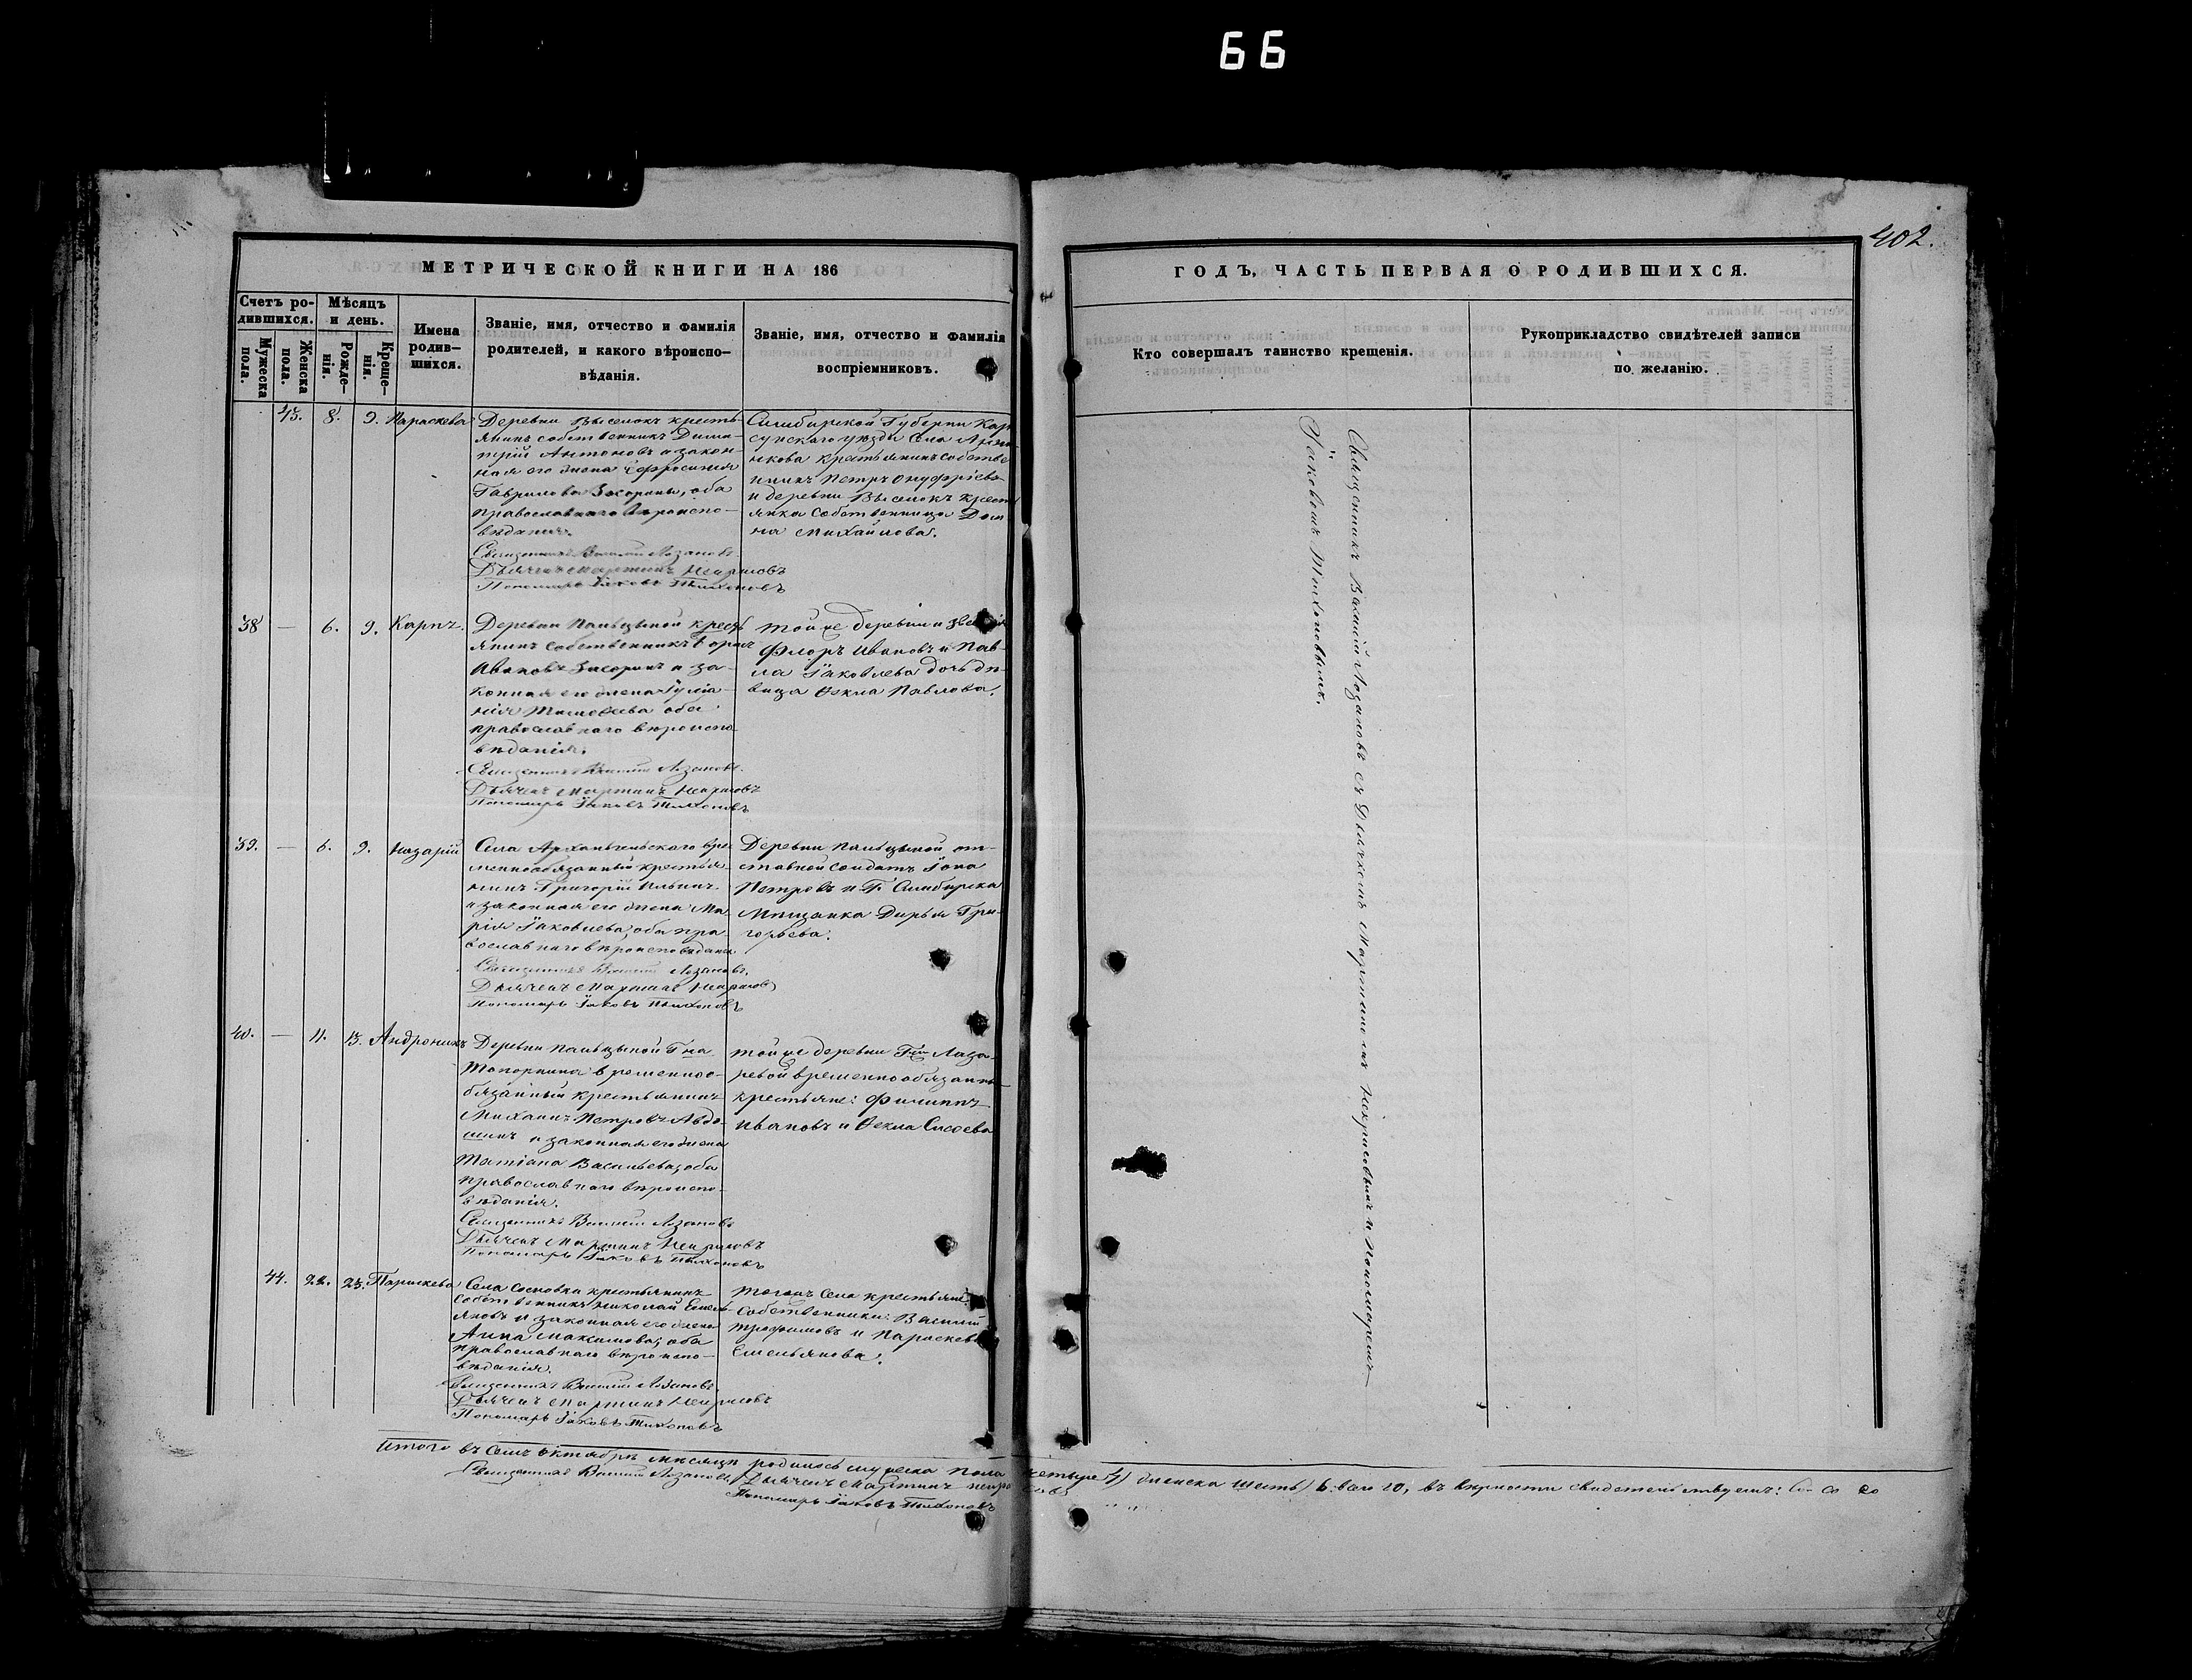 66
402.
МЕТРИЧЕСКОЙ КНИГИ НА 186
ГОДЪ, ЧАСТЬ ПЕРВАЯ О РОДИВШИХСЯ.
Счетъ ро-
дившихся.
Мужеска
пола.
Женска
пола.
Мѣсяцъ
и день.
Рожде-
нія.
Креще-
нія.
Имена
родив-
шихся.
Званіе, имя, отчество и фамилія
родителей, и какого вѣроиспо-
вѣданія.
Званіе, имя, отчество и фамилія
воспріемниковъ.
Кто совершалъ таинство крещенія.
Рукоприкладство свидѣтелей записи
по желанію.
43. 8. 9. Параскева
Деревни Выселокъ кресть-
янинъ собственникъ Дими-
трій Антоновъ и закон-
ная его жена Ефросинія
Гаврилова, оба
православнаго вѣроиспо-
вѣданія.
Священникъ Василій Лозановъ
Дьячекъ Мартинъ Некрасовъ
Пономарь Іаковъ Тихоновъ
Симбирской Губерніи Кар
сунскаго уѣзда Села
крестьянинъ собстве
нникъ Петръ Онуфріевъ
и деревни Выселокъ крест
янка собственница Дом
на Михайлова.
38 — 6. 9. Карпъ.
Деревни Пальцыной кресть
янинъ собственникъ
Ивановъ и за-
конная его жена Іуліа-
нія оба
православнаго вѣроиспо
вѣданія.
Священникъ Василій Лозановъ.
Дьячекъ Мартинъ Некрасовъ
Пономарь Іаковъ Тихоновъ
Той же деревни и званія
Флоръ Ивановъ и Пав-
ла Іаковлева дочь дѣ-
вица Ѳекла Павлова.
39. — 6. 9. Назарій
Села Архангельскаго вре
меннообязанный крестья
нинъ Григорій Ильинъ
и законная его жена Ма
рія Іаковлева, оба пра
вославнаго вѣроисповѣданія
Священникъ Василій Лозановъ.
Дьячекъ Мартинъ Некрасовъ
Пономарь Іаковъ Тихоновъ
Деревни Пальцыной от-
ставной солдатъ Іона
Петровъ и Г. Симбирска
Мѣщанка Дарья Гри-
горьева.
40. — 11. 13. Андроникъ
Деревни Пальцыной Гна
Топорнина временноо-
бязанный крестьянинъ
Михаилъ Петровъ Авдо-
шинъ и законная его жена
Татіана Васильева, оба
православнаго вѣроиспо-
вѣданія.
Священникъ Василій Лозановъ
Дьячекъ Мартинъ Некрасовъ
Пономарь Іаковъ Тихоновъ
той же деревни Гжи Лаза-
ревой временнообязанные
крестьяне: Филиппъ
Ивановъ и Ѳекла Сысоева
44. 22. 23. Параскева
Села Сосновки крестьянинъ
собственникъ Николай Емель-
яновъ и законная его жена
Анна Максимова; оба
православнаго вѣроиспо-
вѣданія.
Священникъ Василій Лозановъ
Дьячекъ Мартинъ Некрасовъ
Пономарь Іаковъ Тихоновъ
тогожъ Села крестьяне
собственники: Василій
Трофимовъ и Параскева
Емельянова.
Священникъ Василій Лозановъ съ Дьячкомъ Мартиномъ Некрасовымъ и Пономаремъ
Іаковомъ Тихоновымъ.
Итого въ семъ октябрѣ мѣсяцѣ родилось мужеска пола четыре 4) женска шесть) 6. всего 10, въ вѣрности свидетельствуемъ:
Священникъ Василій Лозановъ Дьячекъ Мартинъ Некрасовъ
Пономарь Іаковъ Тихоновъ